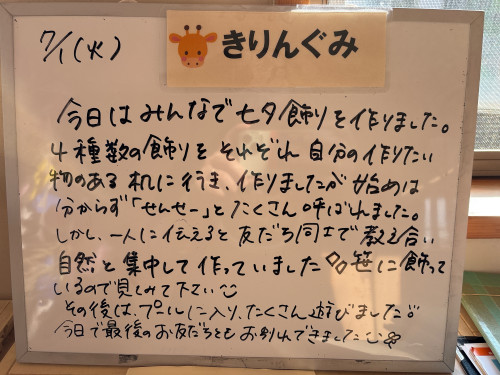 7/1(火)
きりんぐみ
今日はみんなで七夕飾りを作りました。
4種数の飾りをそれぞれ自分の作りたい
物のある机に行き、作りましたが始めは
分からず「せんせー」とたくさん呼ばれました。
しかし、一人に伝えると友だち同士で教え合い
自然と集中して作っていました 笹に飾って
いるので見てみて下さい
その後は、プールに入り、たくさん遊びました
今日で最後のお友だちともお別れできました